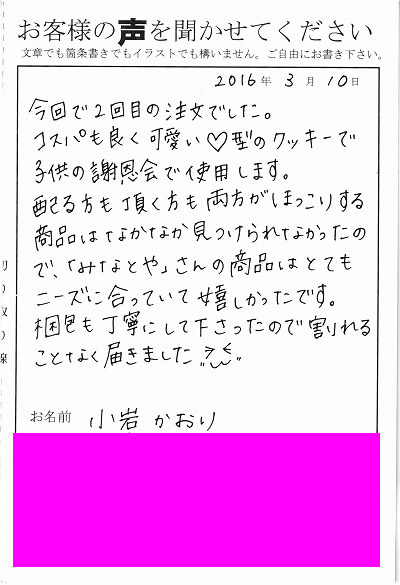 お客様の声を聞かせてください
文章でも箇条書きでもイラストでも構いません。ご自由にお書き下さい。
2016年 3月 10日
今回で2回目の注文でした。
コスパも良く可愛い♡型のクッキーで
子供の謝恩会で使用します。
配る方も頂く方も両方がほっこりする
商品はなかなか見つけられなかったの
で、「みなとや」さんの商品はとても
ニーズに合っていて嬉しかったです。
梱包も丁寧にして下さったので割れる
ことなく届きました
お名前 小岩 かおり
切り取り線